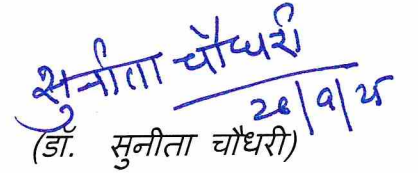 सुनीता चौधरी
26/9/25
(डॉ. सुनीता चौधरी)